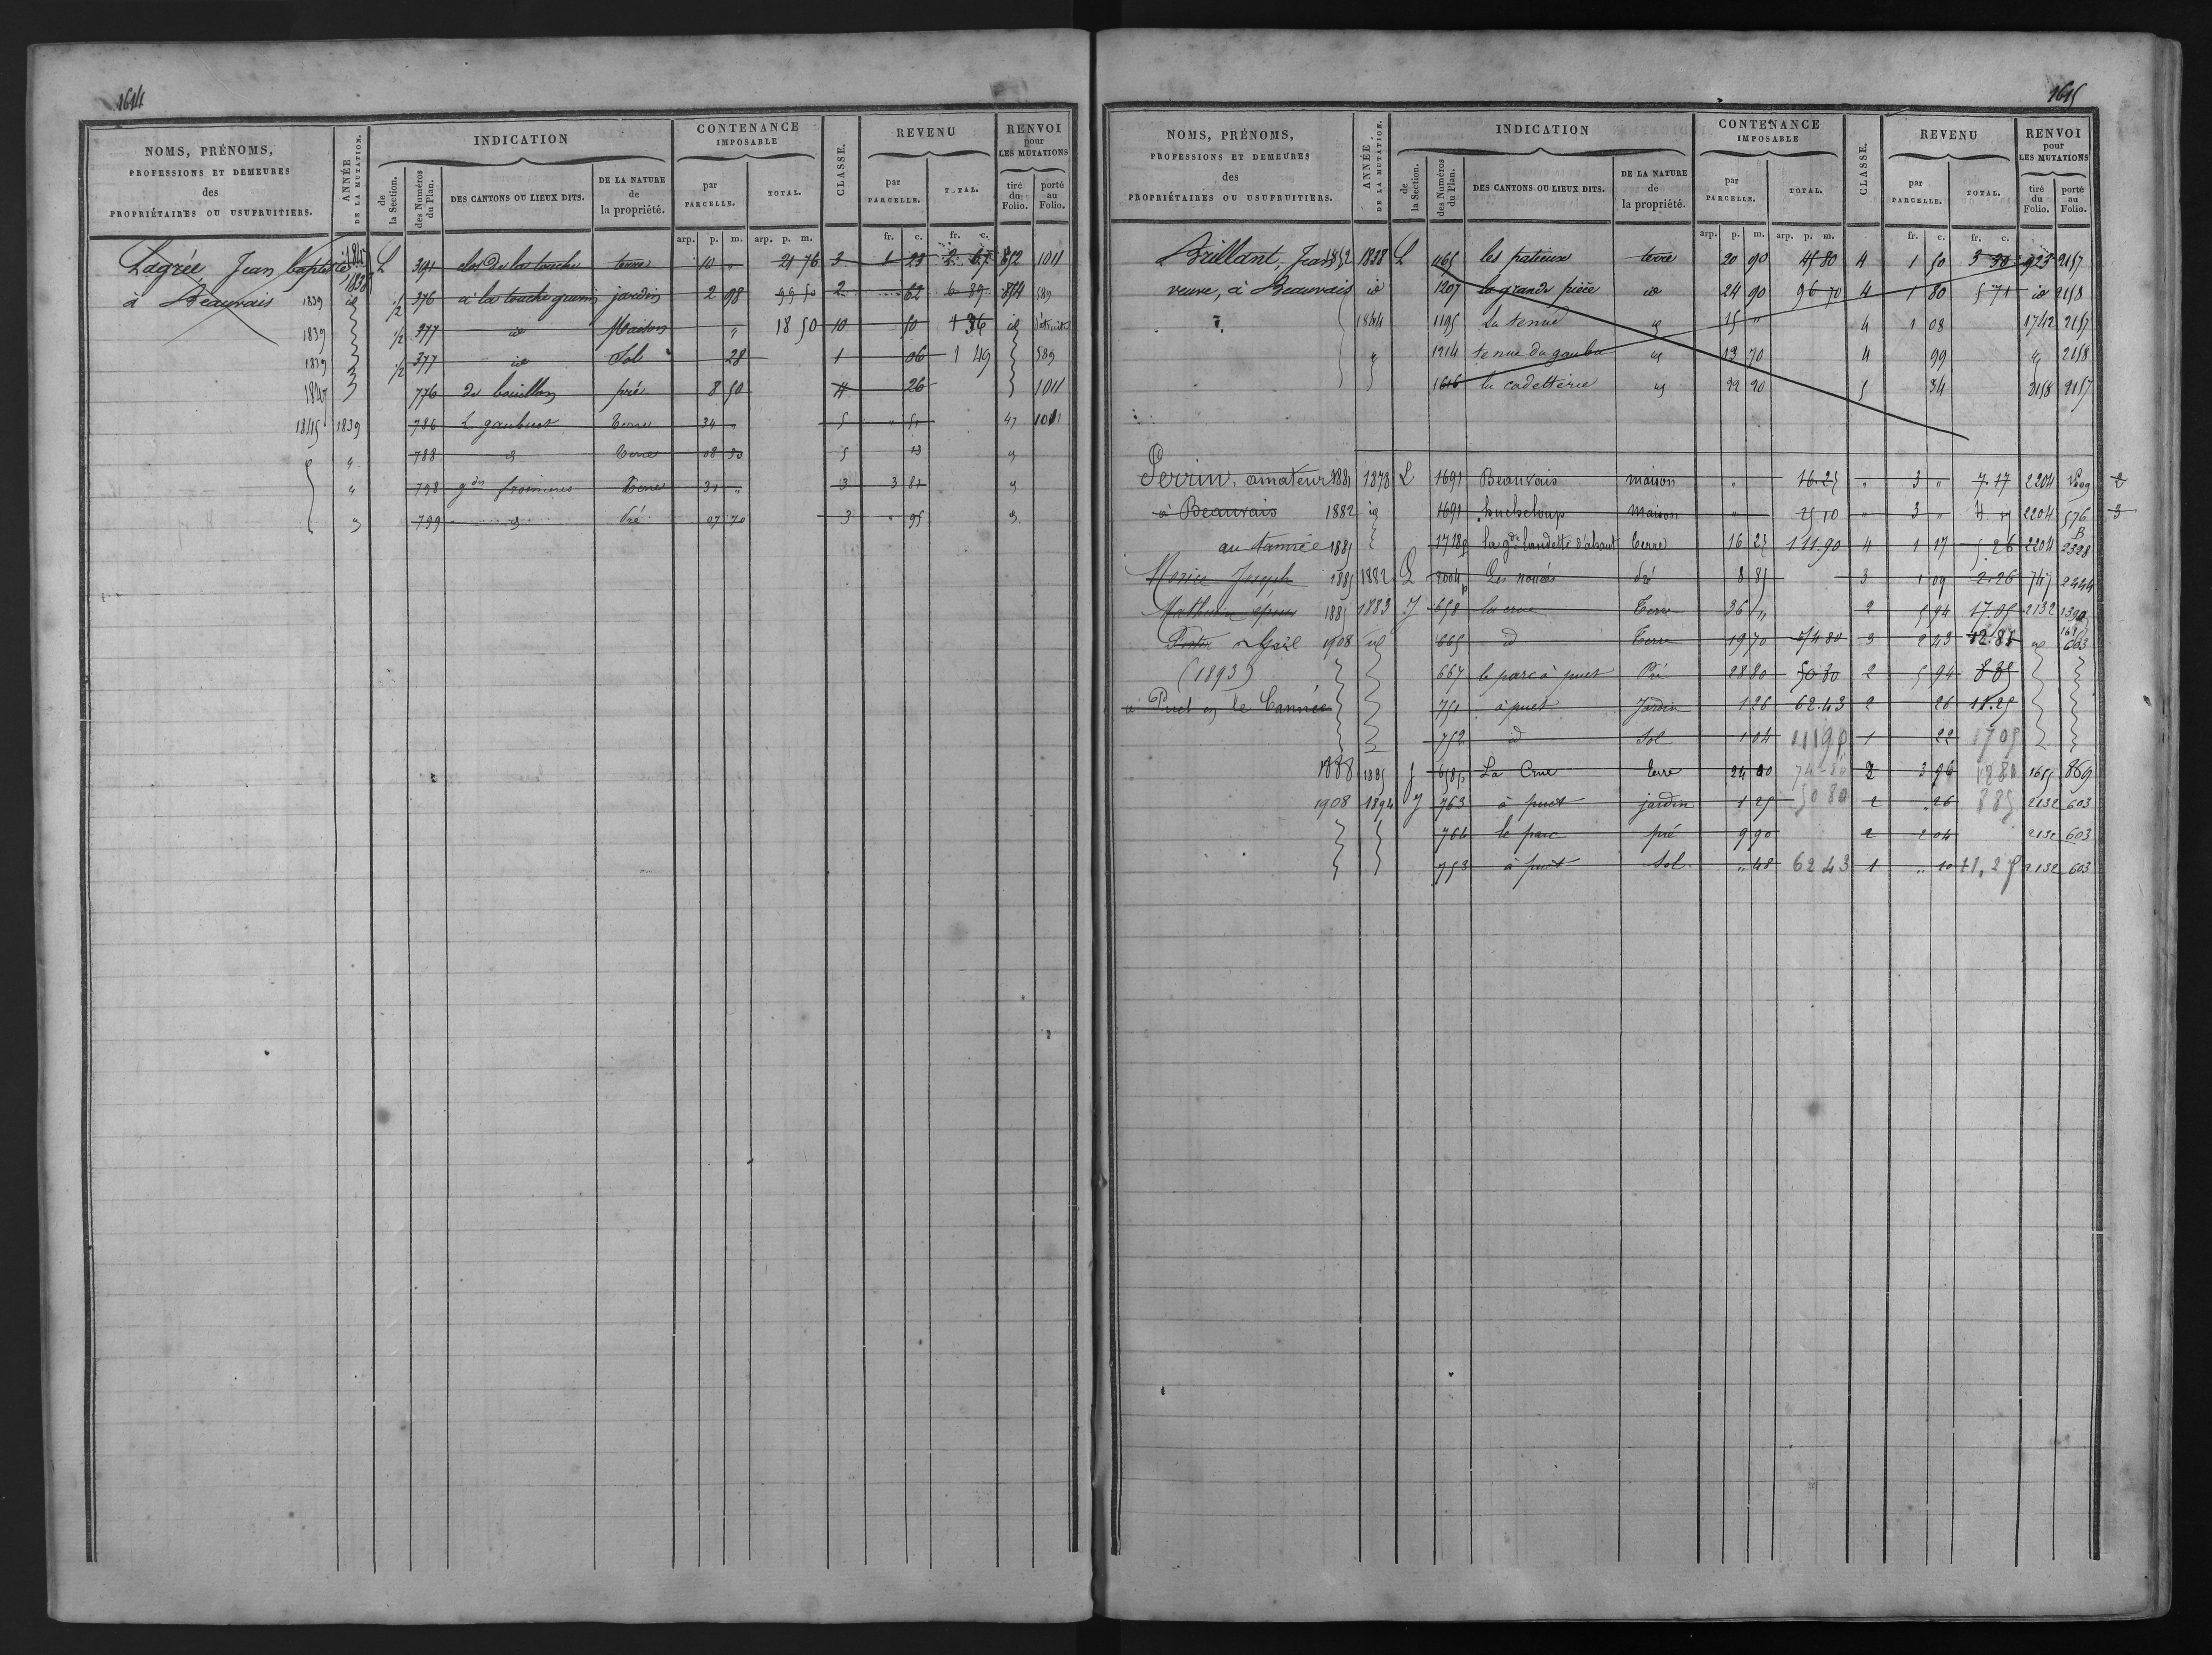 1614
NOMS, PRÉNOMS, PROFESSIONS ET DEMEURES des PROPRIÉTAIRES OU USUFRUITIERS.
ANNÉE DE LA MUTATION.
INDICATION
de la Section.
des Numéros du Plan.
DES CANTONS OU LIEUX DITS.
DE LA NATURE de la propriété.
CONTENANCE IMPOSABLE
par PARCELLE.
TOTAL.
CLASSE.
REVENU
par PARCELLE.
TOTAL.
RENVOI pour LES MUTATIONS
tiré du Folio.
porté au Folio.
arp. p. m. arp. p. m. fr. c. fr. c.
Lagrée Jean baptiste 1847 1838 L 391 clos de la touche terre 10 " 21 76 3 1 23 2 67 852 1011
à Beauvais 1839 id 1/2 376 à la touche jardin 2 98 99 50 2 62 6 89 854 589
1839 1/2 377 id Maison " 18 50 10 50 1 36 id
1839 1/2 377 id Sol 28 1 06 1 49 589
1847 776 du bouillon pré 8 50 4 26 1011
1845 1839 786 Terre 34 " 5 " 51 47 1011
" 788 id Terre 08 50 5 13 id
" 798 gdes Terre 31 " 3 3 81 id
id 799 id Pré 07 70 3 " 95 id
1615
NOMS, PRÉNOMS, PROFESSIONS ET DEMEURES des PROPRIÉTAIRES OU USUFRUITIERS.
ANNÉE DE LA MUTATION.
INDICATION
de la Section.
des Numéros du Plan.
DES CANTONS OU LIEUX DITS.
DE LA NATURE de la propriété.
CONTENANCE IMPOSABLE
par PARCELLE.
TOTAL.
CLASSE.
REVENU
par PARCELLE.
TOTAL.
RENVOI pour LES MUTATIONS
tiré du Folio.
porté au Folio.
arp. p. m. arp. p. m. fr. c. fr. c.
Brillant, Jean 1852 1838 L 1165 les patieux terre 20 90 45 80 4 1 50 3 30 923 2157
veuve, à Beauvais id 1207 la grande pièce id 24 90 96 70 4 1 80 5 71 id 2158
1844 1195 La tenue id 15 " 4 1 08 1742 2157
" 1214 tenue du id 13 70 4 99 " 2158
1616 la cadetterie id 22 20 5 34 2158 2157
Perrin, amateur 1881 1878 L 1691 Beauvais maison " 16.25 " 3 " 7.17 2204 2
à Beauvais 1882 id 1691 hucheloup maison " 25 10 " 3 " 2204 576 3
au tannée 1885 1718p la gde landelle d'abaut terre 16 25 111.90 4 1 17 5.26 2204 2328
Morice Joseph 1885 1882 L 2004p Les nouées Pré 8 85 3 1 09 2.26 747 2444
Mathurin époux 1885 1883 J 658 la crue Terre 36 " 2 5 94 17.05 2132
à Gaël 1908 id 665 id Terre 19 70 74 80 3 2 43 12.81 id 603
(1893) 667 le parc à puet Pré 28 80 50 80 2 5 94 8 85
à Puet en le Tannée 751 à puet Jardin 1 26 62.43 2 26 11.25
752 id Sol 1 04 111 90 1 22 17 05
1888 1885 J 658p La Crue terre 24 00 74-80 2 3 96 12 81 1615 869
1908 1894 J 763 à puet jardin 1 25 50 80 2 " 26 8 85 2132 603
764 le parc pré 9 90 2 2 04 2132 603
753 à puet Sol " 48 62 43 1 " 10 11,25 2132 603